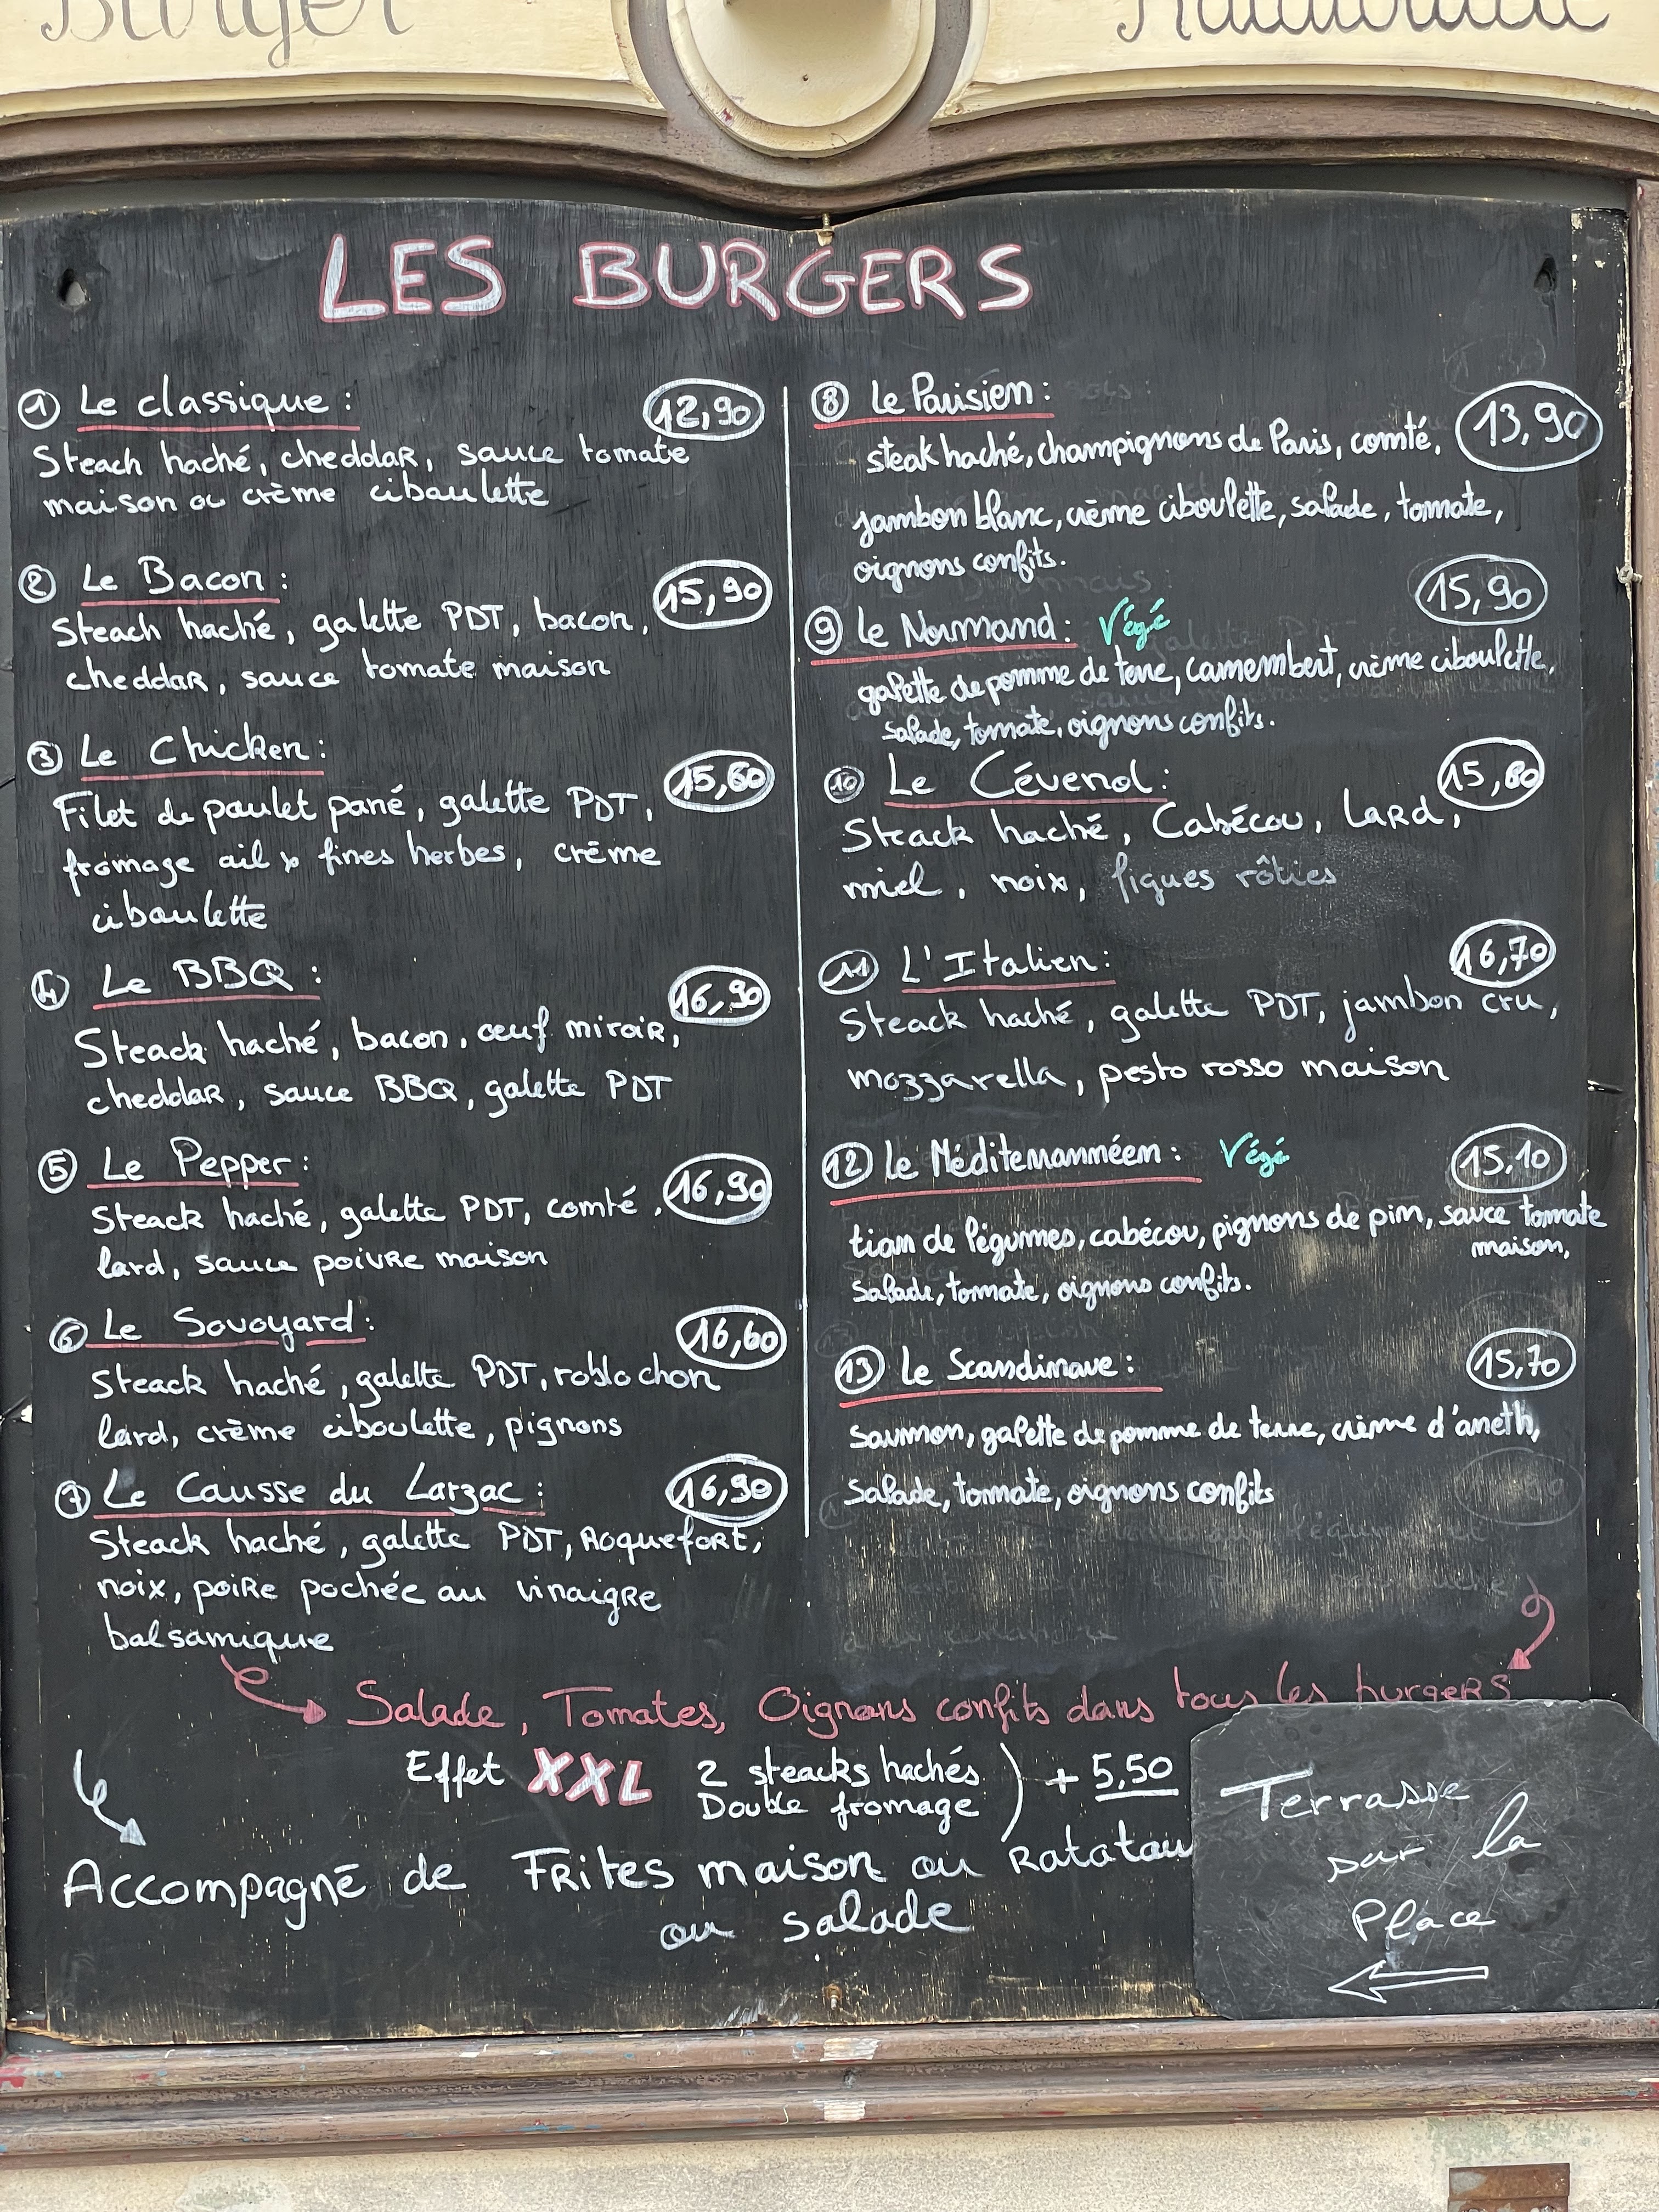 Burger
LES BURGERS
1 Le classique : 12,90
Steach haché, cheddar, sauce tomate
maison ou crème ciboulette
2 Le Bacon : 15,90
Steach haché, galette PDT, bacon,
cheddar, sauce tomate maison
3 Le Chicken : 15,60
Filet de poulet pané, galette PDT,
fromage ail & fines herbes, crème
ciboulette
4 Le BBQ : 16,90
Steack haché, bacon, œuf miroir,
cheddar, sauce BBQ, galette PDT
5 Le Pepper : 16,90
Steack haché, galette PDT, comté,
lard, sauce poivre maison
6 Le Sovoyard : 16,60
Steack haché, galette PDT, roblochon
lard, crème ciboulette, pignons
7 Le Causse du Larzac : 16,90
Steack haché, galette PDT, Roquefort,
noix, poire pochée au vinaigre
balsamique
8 Le Parisien : 13,90
steak haché, champignons de Paris, comté,
jambon blanc, crème ciboulette, salade, tomate,
oignons confits.
9 Le Normand : Végé 15,90
galette de pomme de terre, camembert, crème ciboulette,
salade, tomate, oignons confits.
10 Le Cévenol : 15,80
Steack haché, Cabécou, Lard,
miel, noix, figues rôties
11 L'Italien : 16,70
Steack haché, galette PDT, jambon cru,
mozzarella, pesto rosso maison
12 Le Méditerrannéen : Végé 15,10
tian de légumes, cabécou, pignons de pin, sauce tomate
maison,
salade, tomate, oignons confits.
13 Le Scandinave : 15,70
saumon, galette de pomme de terre, crème d'aneth,
salade, tomate, oignons confits
Salade, Tomates, Oignons confits dans tous les burgers
Effet XXL 2 steacks hachés
Double fromage ) + 5,50
Accompagné de Frites maison ou Ratatou
ou salade
Terrasse
sur la
Place